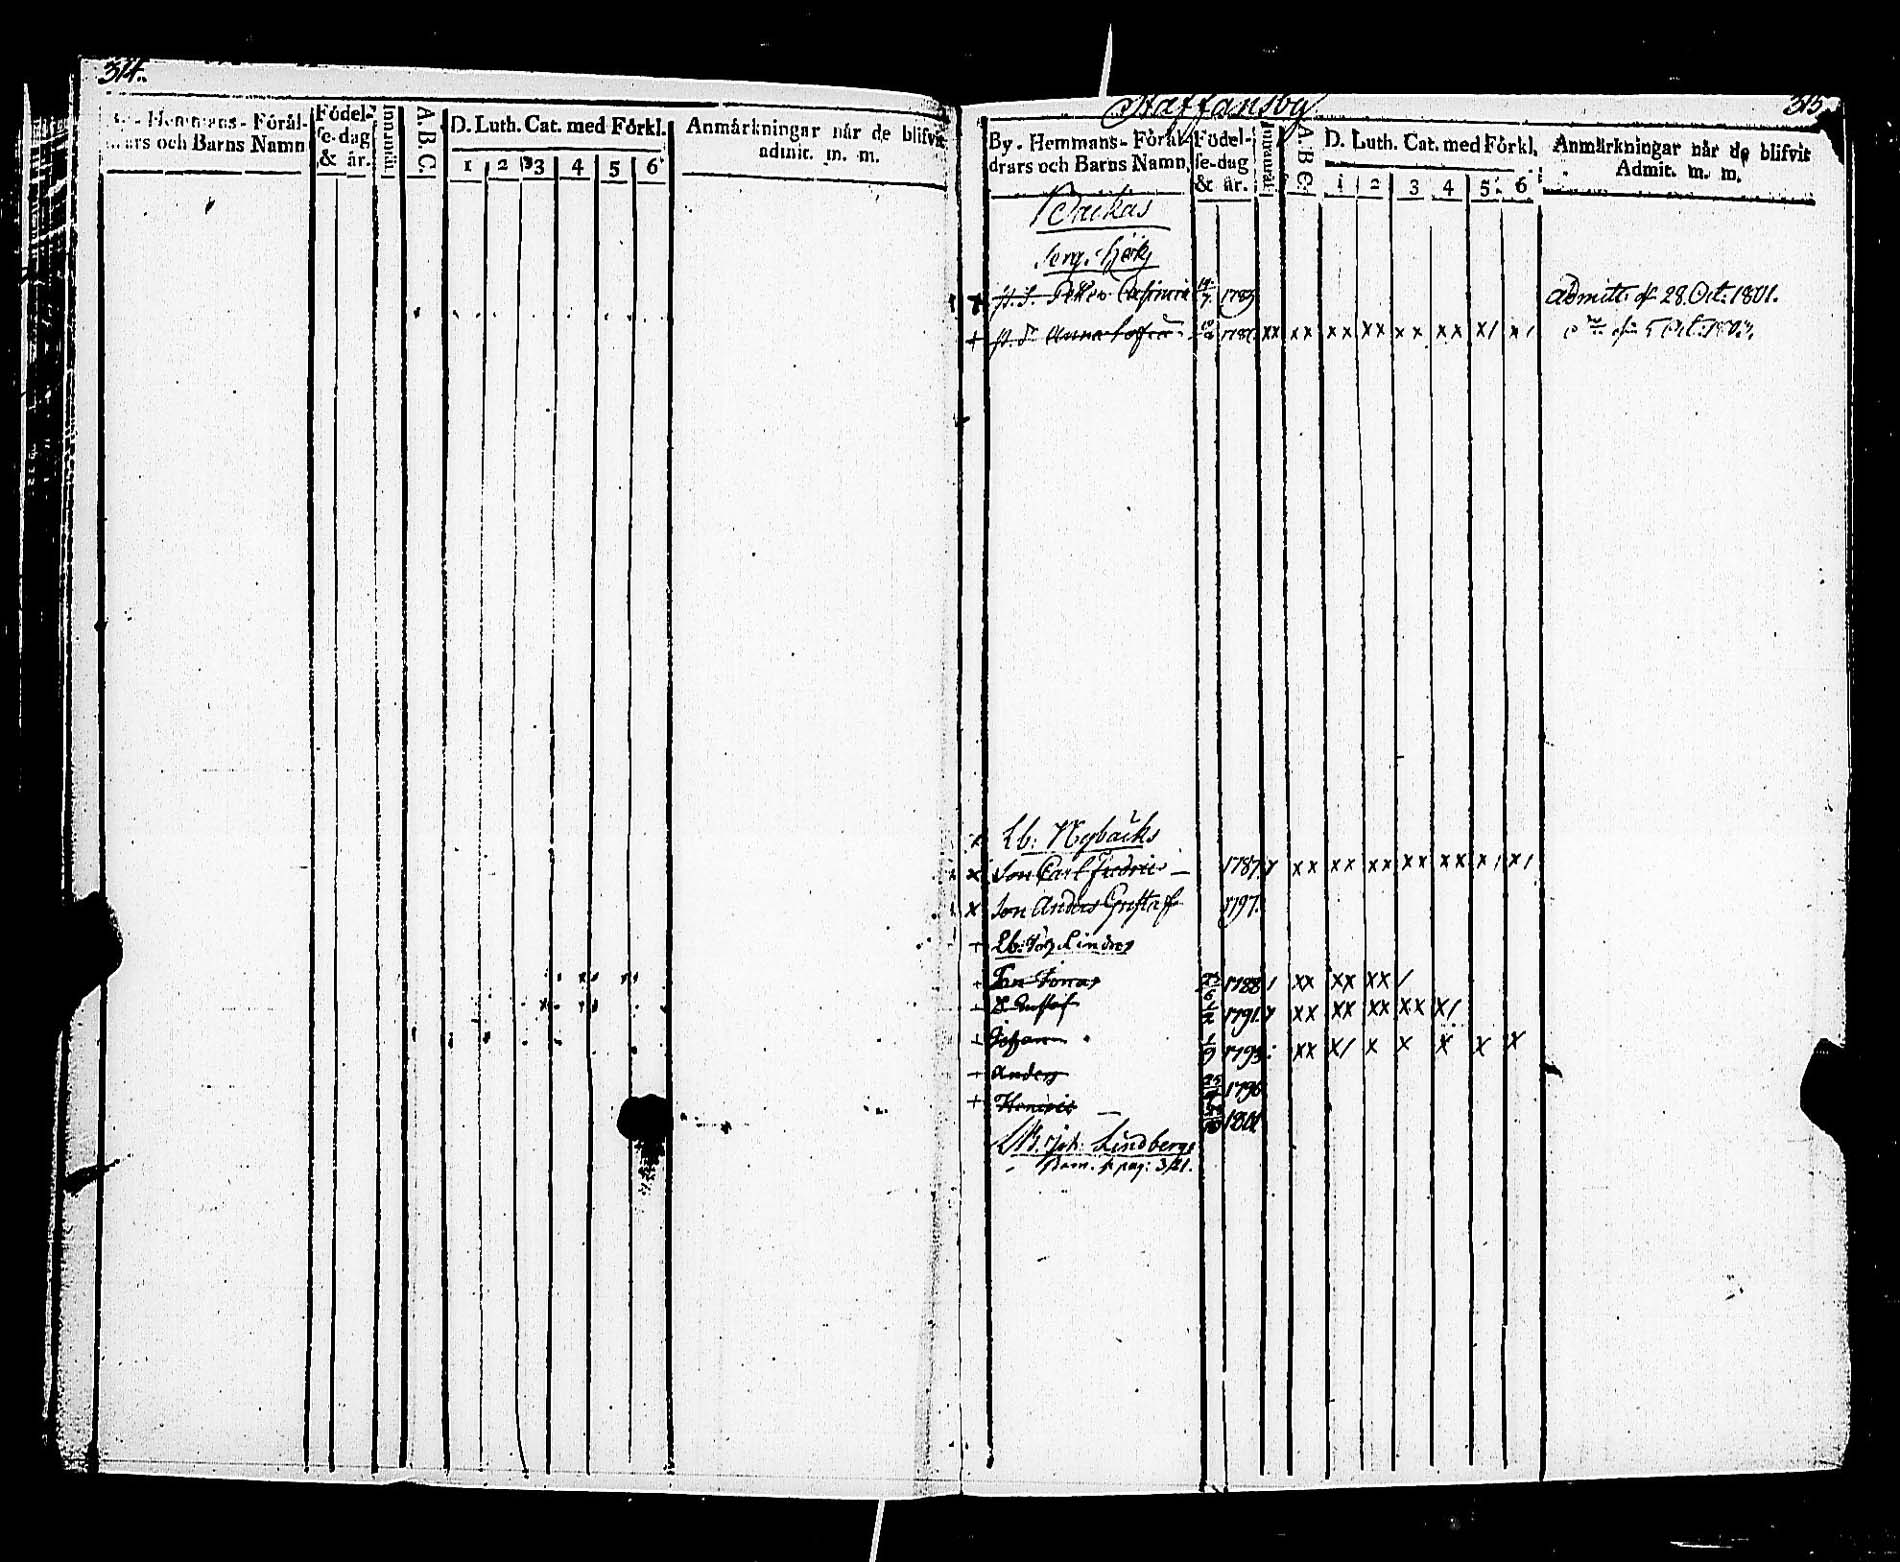 314.
Hemmans - Förål-
drars och Barns Namn
Födel-
se-dag
& år.
Innanläs.
A. B. C.
D. Luth. Cat. med Förkl.
1 2 3 4 5 6
Anmärkningar når de blifvit
admit. m. m.
Staffansby
315
By. Hemmans- Förål-
drars och Barns Namn
Födel-
se-dag
& år.
A. B. C.
D. Luth. Cat. med Förkl.
1 2 3 4 5 6
Anmärkningar når de blifvit
Admit. m. m.
Backas
Serg.
Petter 1785 admitt. 28. Oct: 1801.
+ Anna xx xx xx xx xx xx x/ x/
x Lb: Nybäcks
x Son Carl Fredric 1787 xx xx xx xx xx x/ x/
x Son Anders Gustaf 1797.
+ Lb:
Son Jonas 1788 / xx xx xx /
Gustaf 1791 xx xx xx xx x/
Johan 1793 xx x/ x x x x x
+ Anders 1796
+ Henric 1801
Joh: Lindbergs
Barn pag: 321.